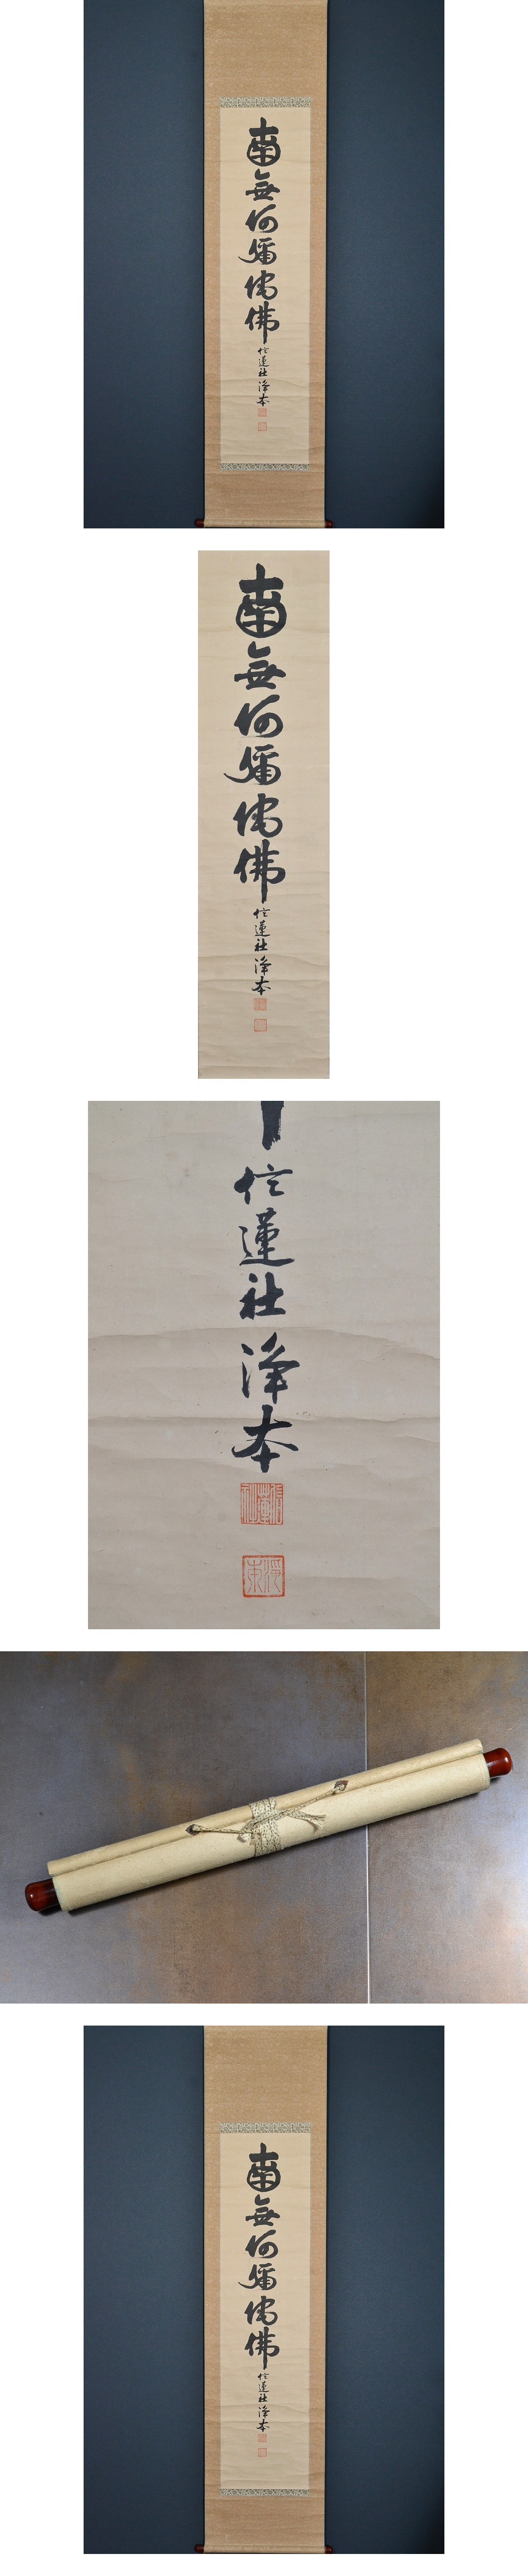 南無阿彌陀佛
信蓮社淨本
南無阿彌陀佛
信蓮社淨本
信蓮社淨本
南無阿彌陀佛
信蓮社淨本